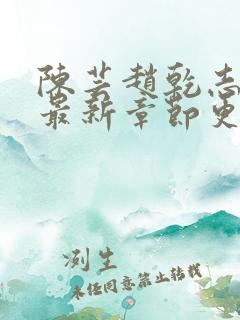 陳芸趙乾志
最新章節更
洌生
未经同意禁止转载